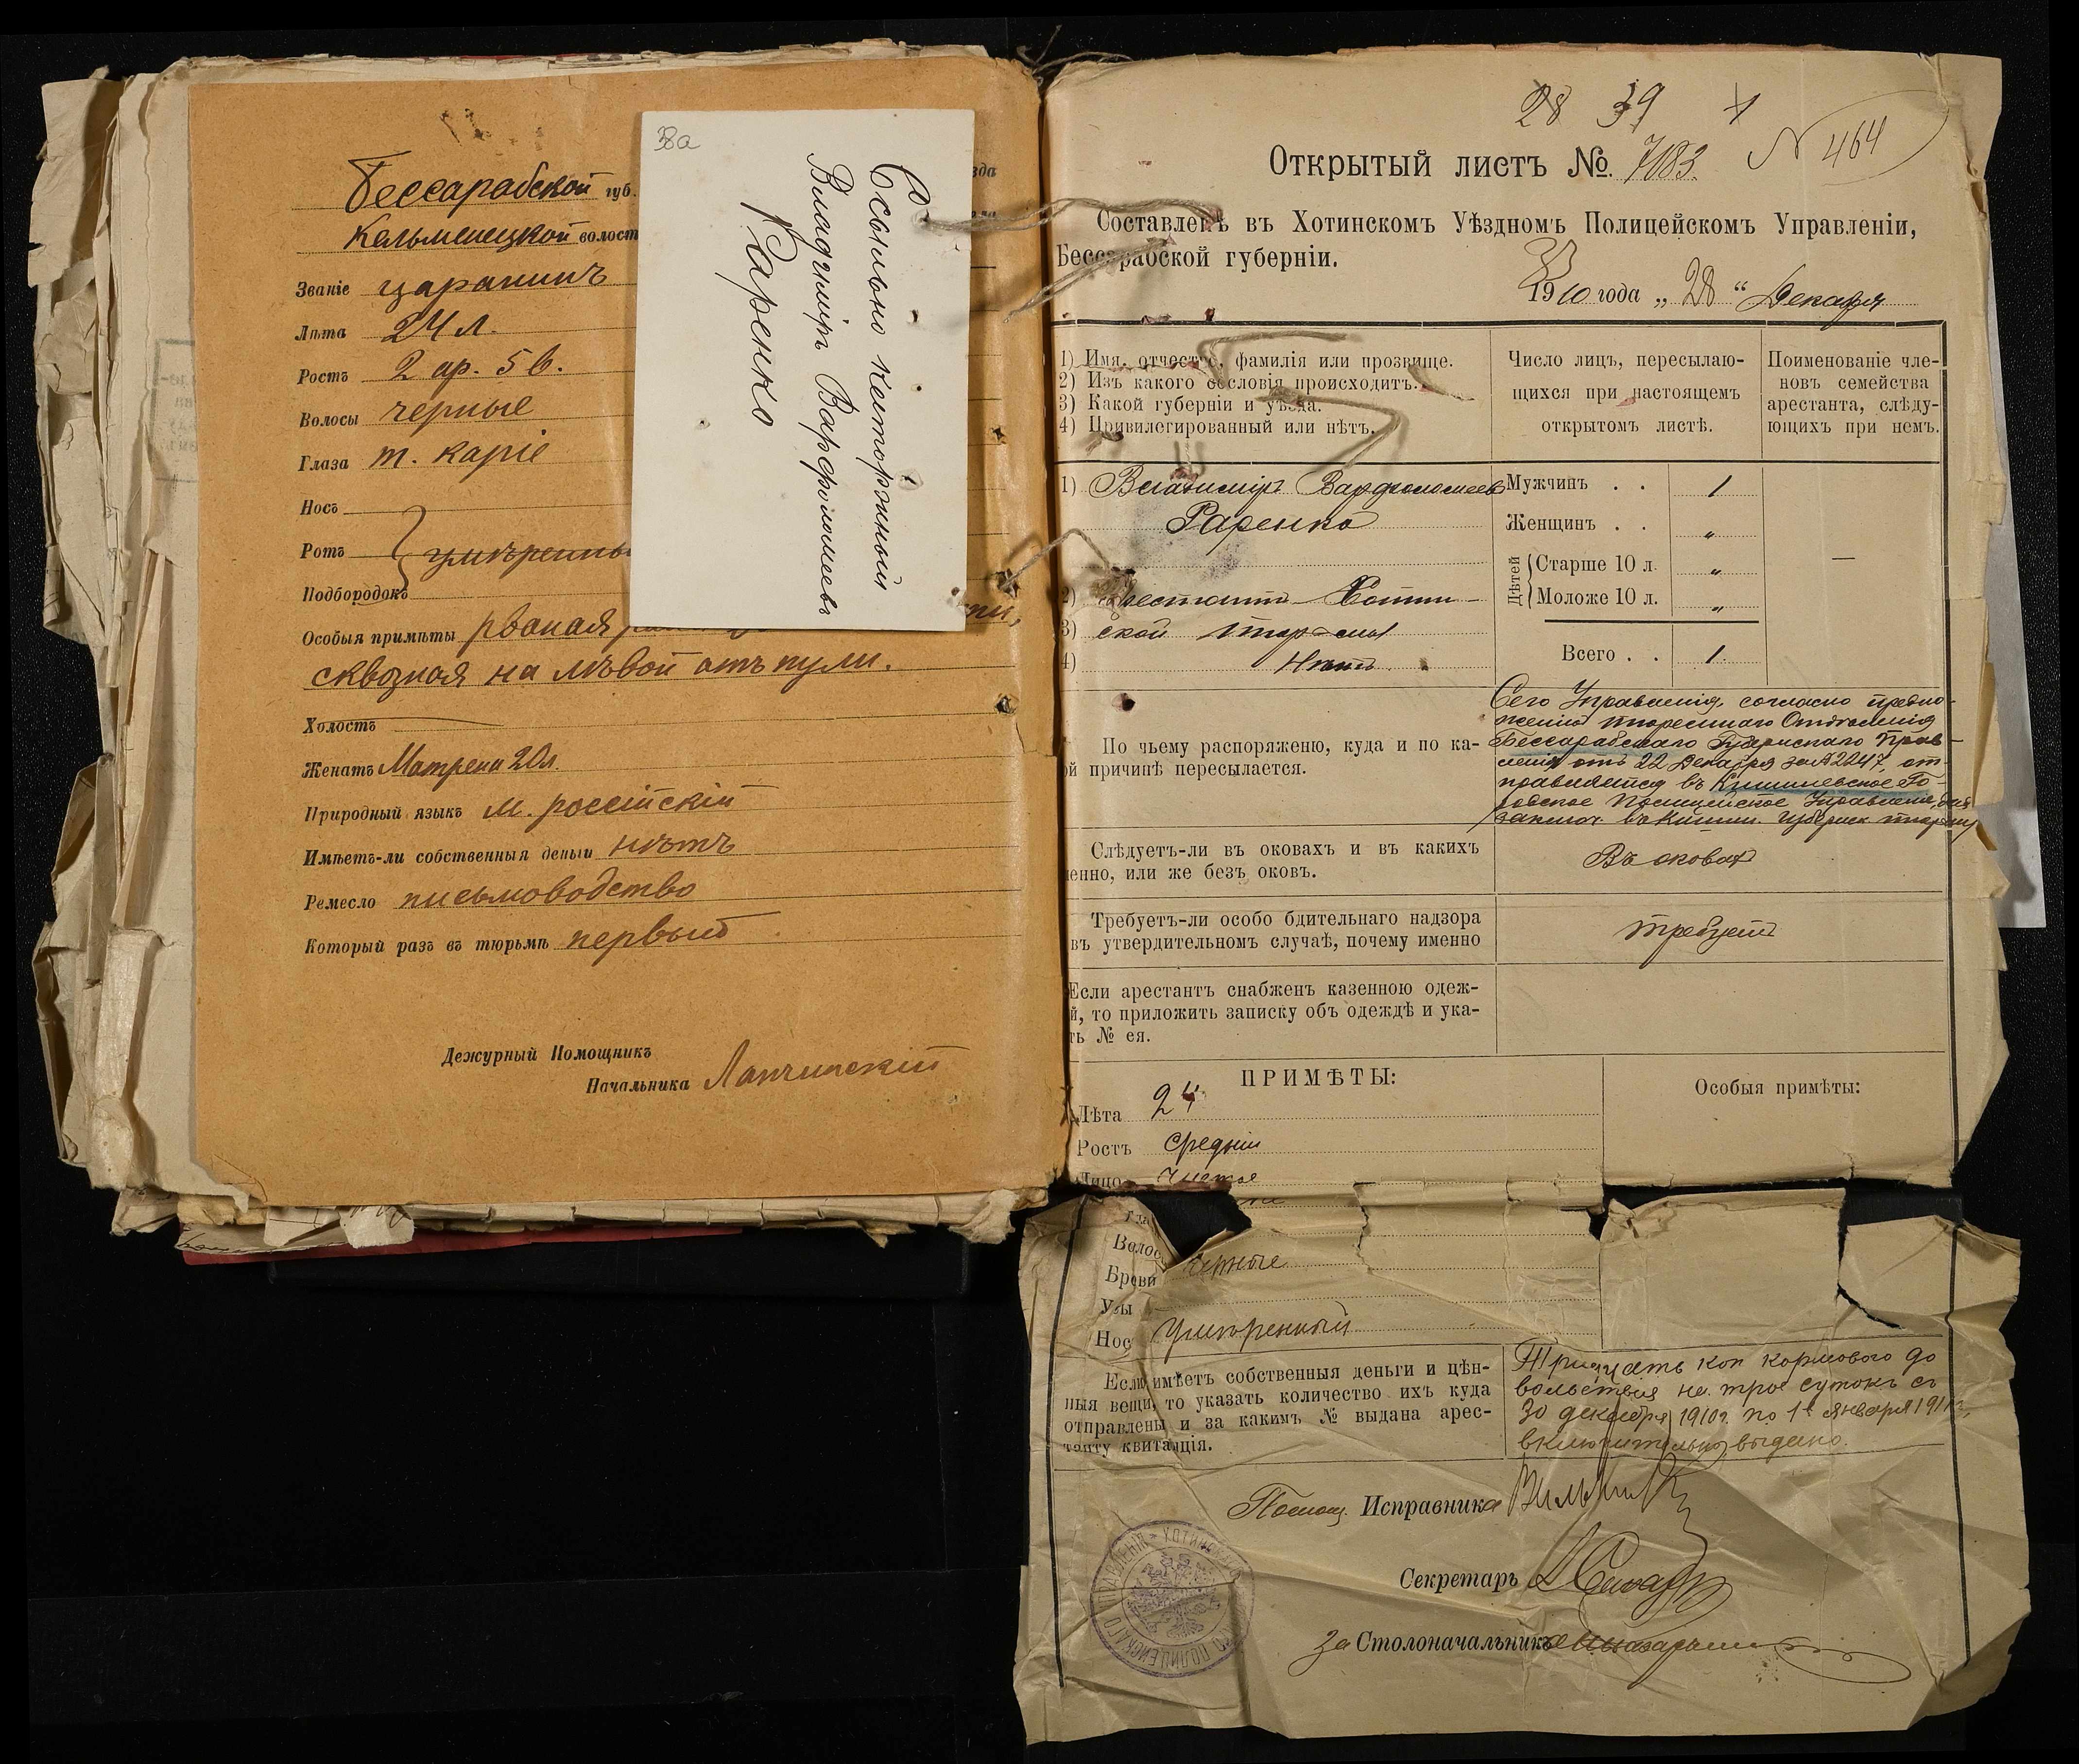 Бессарабской губ.
Кельменецкой волост
Званіе царанинъ
Лѣта 24 л.
Ростъ 2 ар. 5 в.
Волосы черные
Глаза т. карiе
Носъ
Ротъ умѣренны
Подбородокъ
Особыя примѣты рваная
сквозная на лѣвой отъ пули.
Холостъ
Женатъ Матрена 20 л.
Природный языкъ м. россійскій
Имѣетъ-ли собственныя деньги нѣтъ
Ремесло письмоводство
Который разъ въ тюрьмѣ первый
Дежурный Помощникъ
Начальника
38а
Ссыльно каторжный
Владиміръ Варфоломеевъ
Раренко
28 39
№ 464
Открытый листъ №. 7183.
Составленъ въ Хотинскомъ Уѣздномъ Полицейскомъ Управленіи,
Бессарабской губерніи.
1910 года „ 28 “ Декабря
1) Имя, отчество, фамилія или прозвище.
2) Изъ какого сословія происходитъ.
3) Какой губерніи и уѣзда.
4) Привилегированный или нѣтъ.
Число лицъ, пересылаю-
щихся при настоящемъ
открытомъ листѣ.
Поименованіе чле-
новъ семейства
арестанта, слѣду-
ющихъ при немъ.
1) Владиміръ Варфоломеевъ
Раренко
2) Арестантъ Хотин-
3) ской тюрьмы
4) Нѣтъ
Мужчинъ . . 1
Женщинъ . . „
Дѣтей
Старше 10 л. „
Моложе 10 л. „
Всего . . 1.
—
По чьему распоряженю, куда и по ка-
ой причинѣ пересылается.
Сего Управленія, согласно предло-
женію тюремнаго Отдѣленія
Бессарабскаго Губернскаго Прав-
ленія отъ 22 Декабря за № 2247, от-
правляется въ Кишиневское Го-
родское Полицейское Управленіе, для
заключ. въ Кишин. губернск. тюрьму
Слѣдуетъ-ли въ оковахъ и въ какихъ
енно, или же безъ оков.
Въ оковахъ
Требуетъ-ли особо бдительнаго надзора
въ утвердительномъ случаѣ, почему именно
требуетъ
Если арестантъ снабженъ казенною одеж-
й, то приложить записку объ одеждѣ и ука-
ть № ея.
ПРИМѢТЫ:
Особыя примѣты:
Лѣта 24
Ростъ средній
Лицо чистое
Гла
Волос
Брови черные
Усы
Нос умѣренный
Если имѣетъ собственныя деньги и цѣн-
ныя вещи, то указать количество ихъ куда
отправлены и за какимъ № выдана арес-
танту квитанція.
Тридцать коп кормового до
вольствія на трое сутокъ съ
30 декабря 1910 г. по 1е января 1911 г.
включительно выдано.
Помощ. Исправника
Секретарь
За Столоначальника
ХОТИНСКАГО ПОЛИЦЕЙСКАГО УПРАВЛЕНІЯ